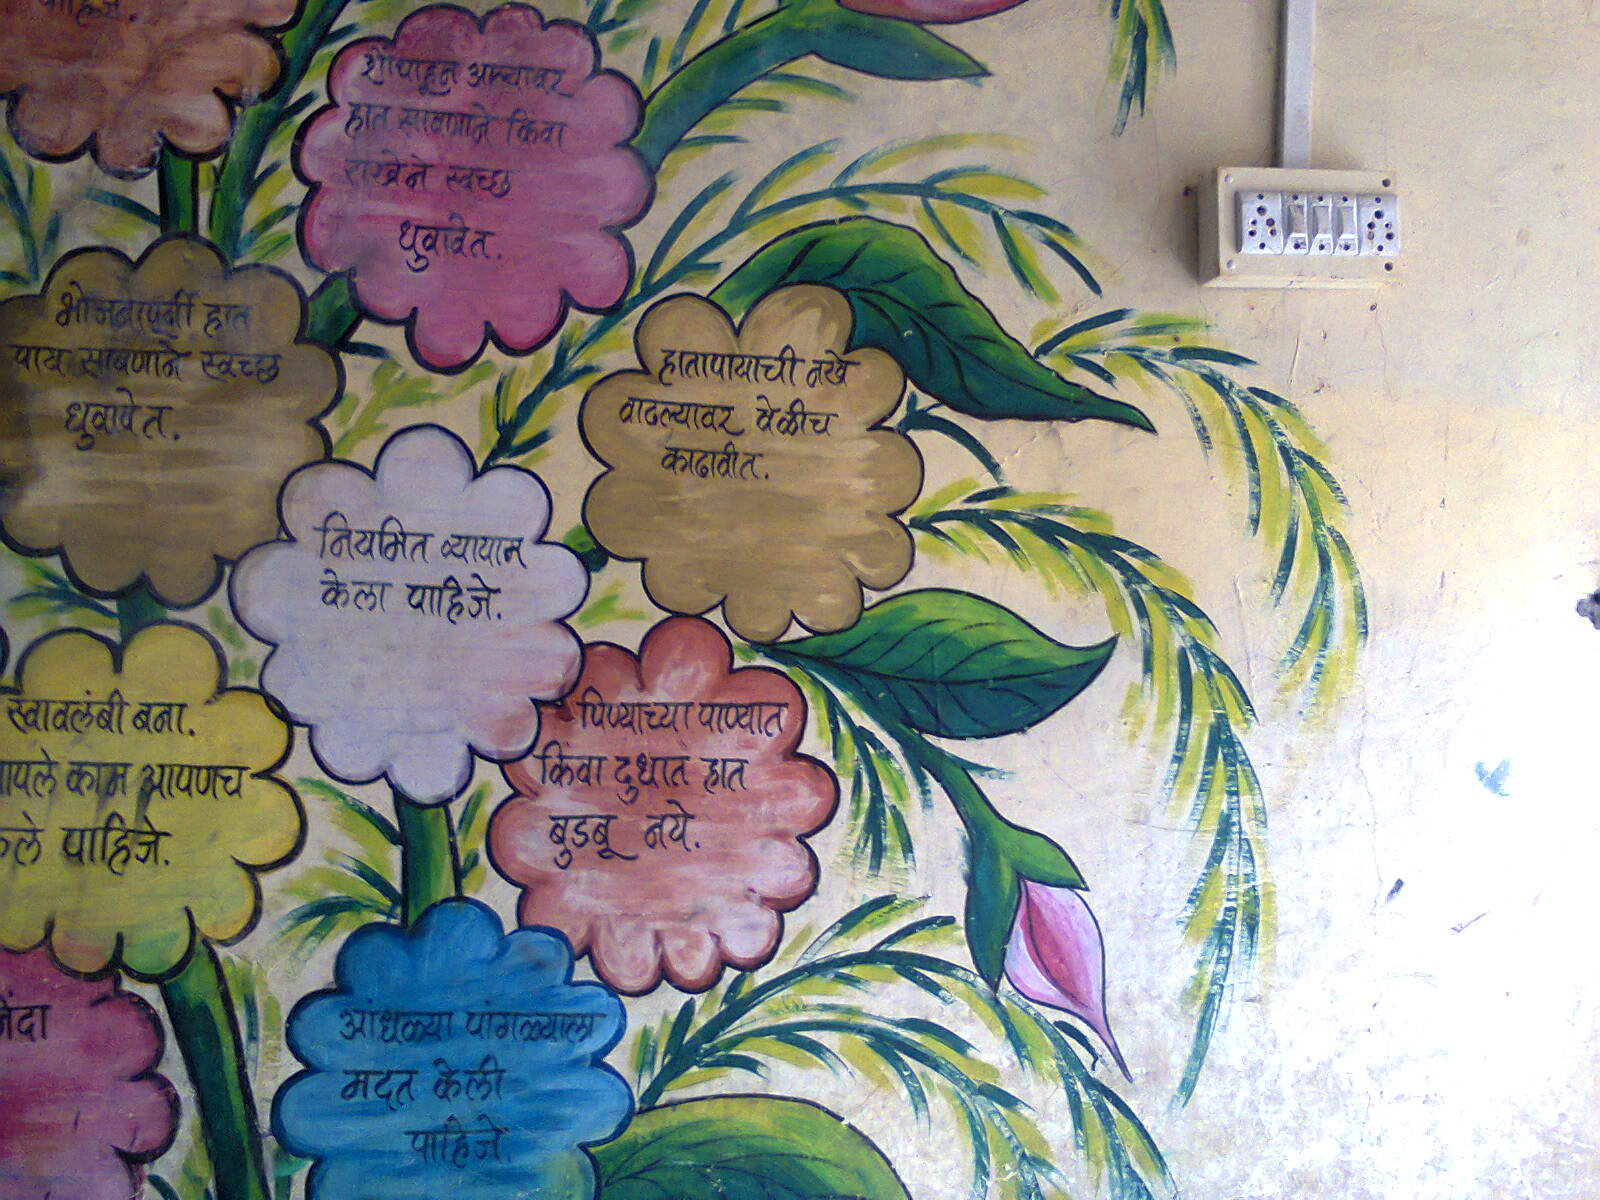 पाहिजे.
शौचाहून आल्यावर
हात साबणाने किंवा
राखेने स्वच्छ
धुवावेत.
भोजनापूर्वी हात
पाय साबणाने स्वच्छ
धुवावेत.
हातापायाची नखे
वाढल्यावर वेळीच
काढावीत.
नियमित व्यायाम
केला पाहिजे.
स्वावलंबी बना.
आपले काम आपणच
केले पाहिजे.
पिण्याच्या पाण्यात
किंवा दुधात हात
बुडबू नये.
आंधळ्या पांगळ्याला
मदत केली
पाहिजे.